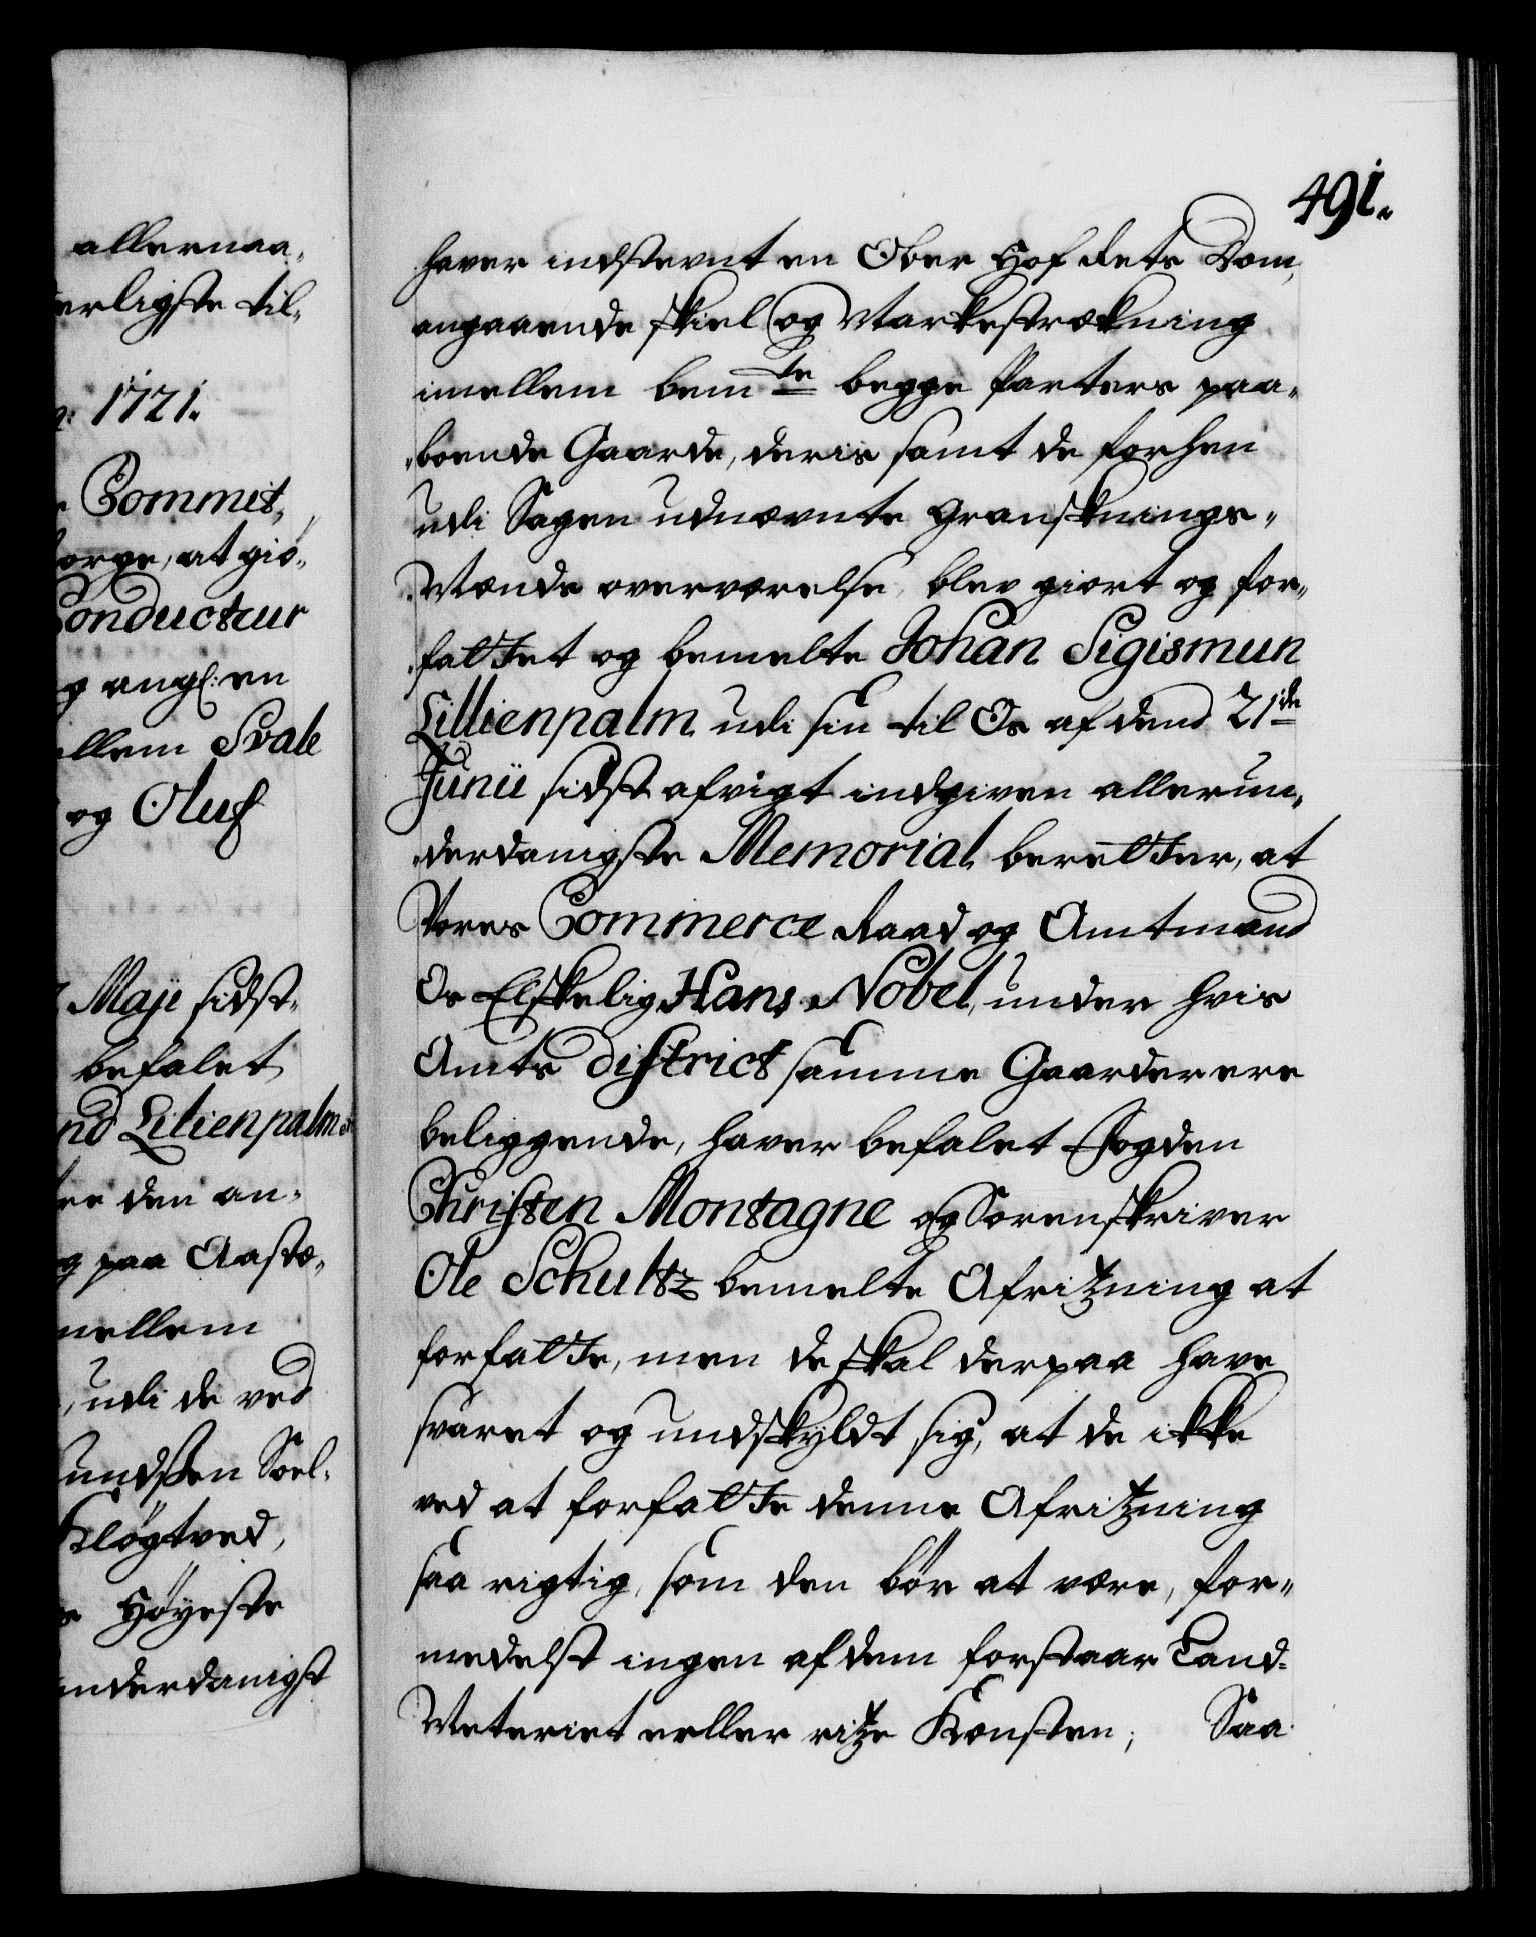 allernaa-
erligste til-
1721.
Commis-
orge, at giø-
Conducteur
og angl: en
llem Svale
og Oluf
Maji sidst-
befalet
nd Lilienpalm
den an-
og paa Aastæ-
mellem
, udi de ved
undsen Soel-
Kløgtved,
Høyeste
underdanigst
491.
haver indstevnt en Ober Hof Rets Dom,
angaaende skiel og Markestrækning
imellem bemte begge Parters paa-
boende Gaarde, deris samt de forhen
udi Sagen udnævnte gransknings-
Mænds overværelse, blev giort og for-
fattet og bemelte Johan Sigismun
Lillienpalm udi sin til Os af dend 21de
Junii sidst afvigt indgiven allerun-
derdanigste Memorial beretter, at
Vores Commerce Raad og Amtmand
Os Elskelig Hans Nobel, under hvis
Amts District samme Gaarder ere
beliggende, haver befalet Fogden
Christen Montagne og Sorenskriver
Ole Schultz bemelte Afritzning at
forfatte, men de skal derpaa have
svaret og undskyldt sig, at de ikke
ved at forfatte denne Afritzning
saa rigtig, som den bør at være, for-
medelst ingen af dem forstaar Land-
Meteriet eller ritze Konsten; Saa